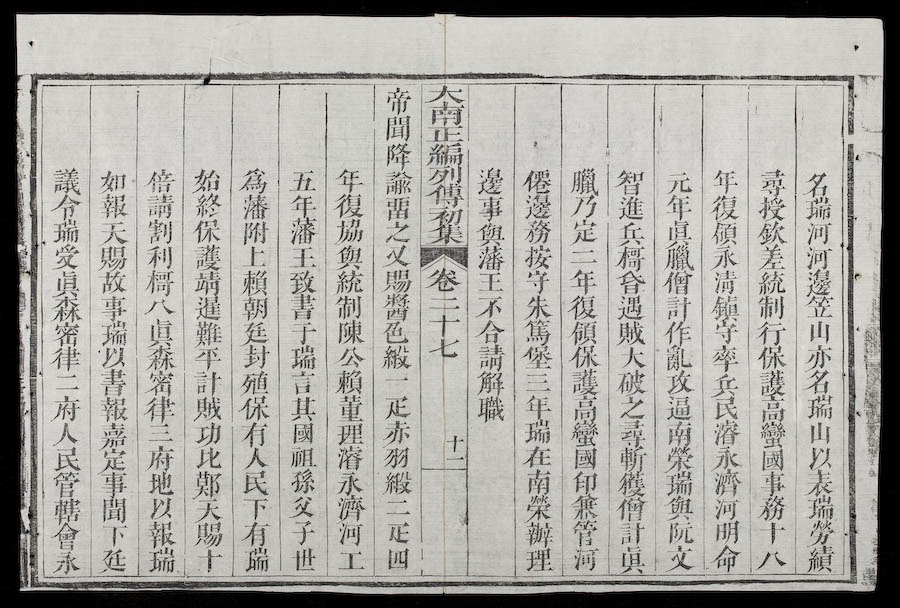 名瑞河河邊笠山亦名瑞山以表瑞勞績
尋授欽差統制行保護高蠻國事務十八
年復領永清鎮守率兵民濬永濟河明命
元年眞臘僧計作亂攻逼南榮瑞與阮文
智進兵槅昏遇賊大破之尋斬獲僧計眞
臘乃定二年復領保護高蠻國印兼管河
僊邊務按守朱篤堡三年瑞在南榮辦理
邊事與藩王不合請解職
大南正編列傳初集
卷二十七
十二
帝聞降諭畱之又賜醬色緞一疋赤羽緞二疋四
年復協與統制陳公賴董理濬永濟河工
五年藩王致書于瑞言其國祖孫父子世
爲藩附上賴朝廷封殖保有人民下有瑞
始終保護靖暹難平計賊功比鄭天賜十
倍請割利槅八眞森密律三府地以報瑞
如報天賜故事瑞以書報嘉定事聞下廷
議令瑞受眞森密律二府人民管轄會永